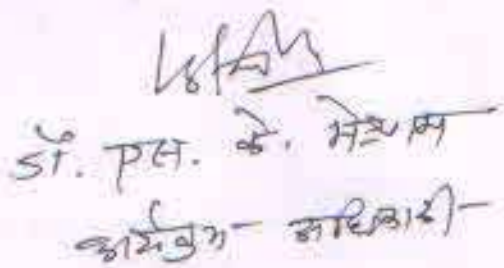 डॉ. एस. के. मेश्राम
कार्यक्रम अधिकारी